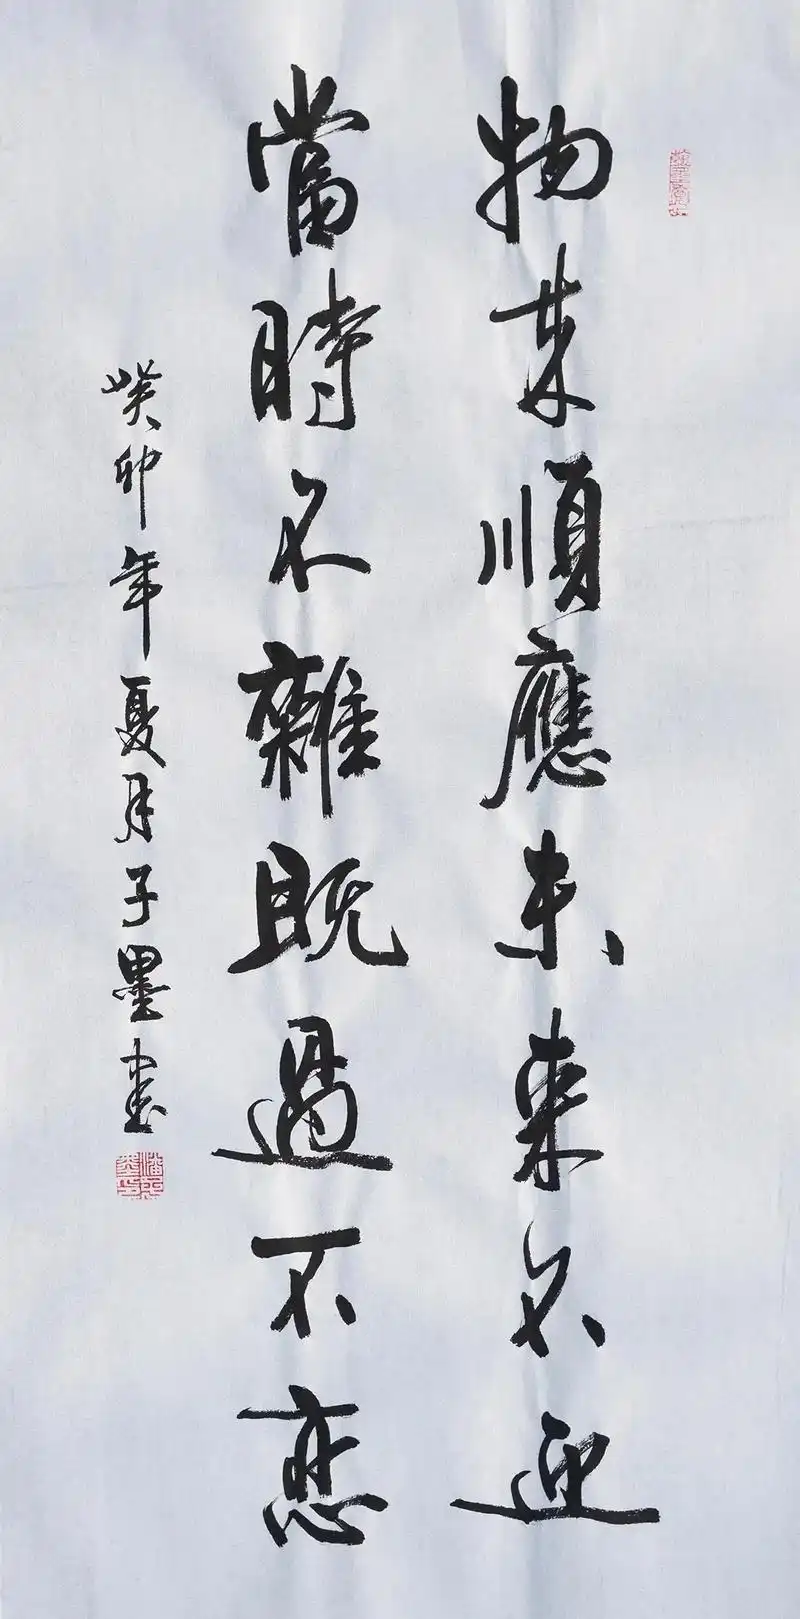 物来順應未来不迎
當時不雜既過不恋
癸卯年夏月子墨书